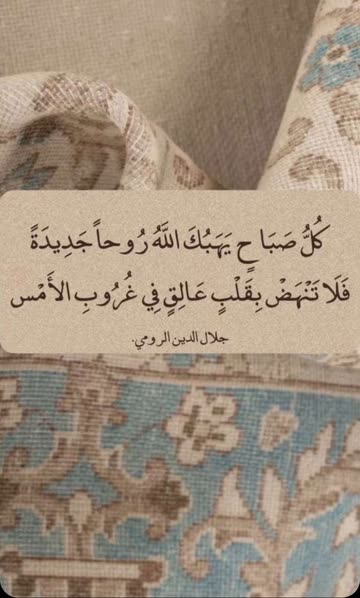 كُلُّ صَبَاحٍ يَهَبُكَ اللَّهُ رُوحاً جَدِيدَةً
فَلَا تَنْهَضْ بِقَلْبٍ عَالِقٍ فِي غُرُوبِ الأَمْس
جلال الدين الرومي.